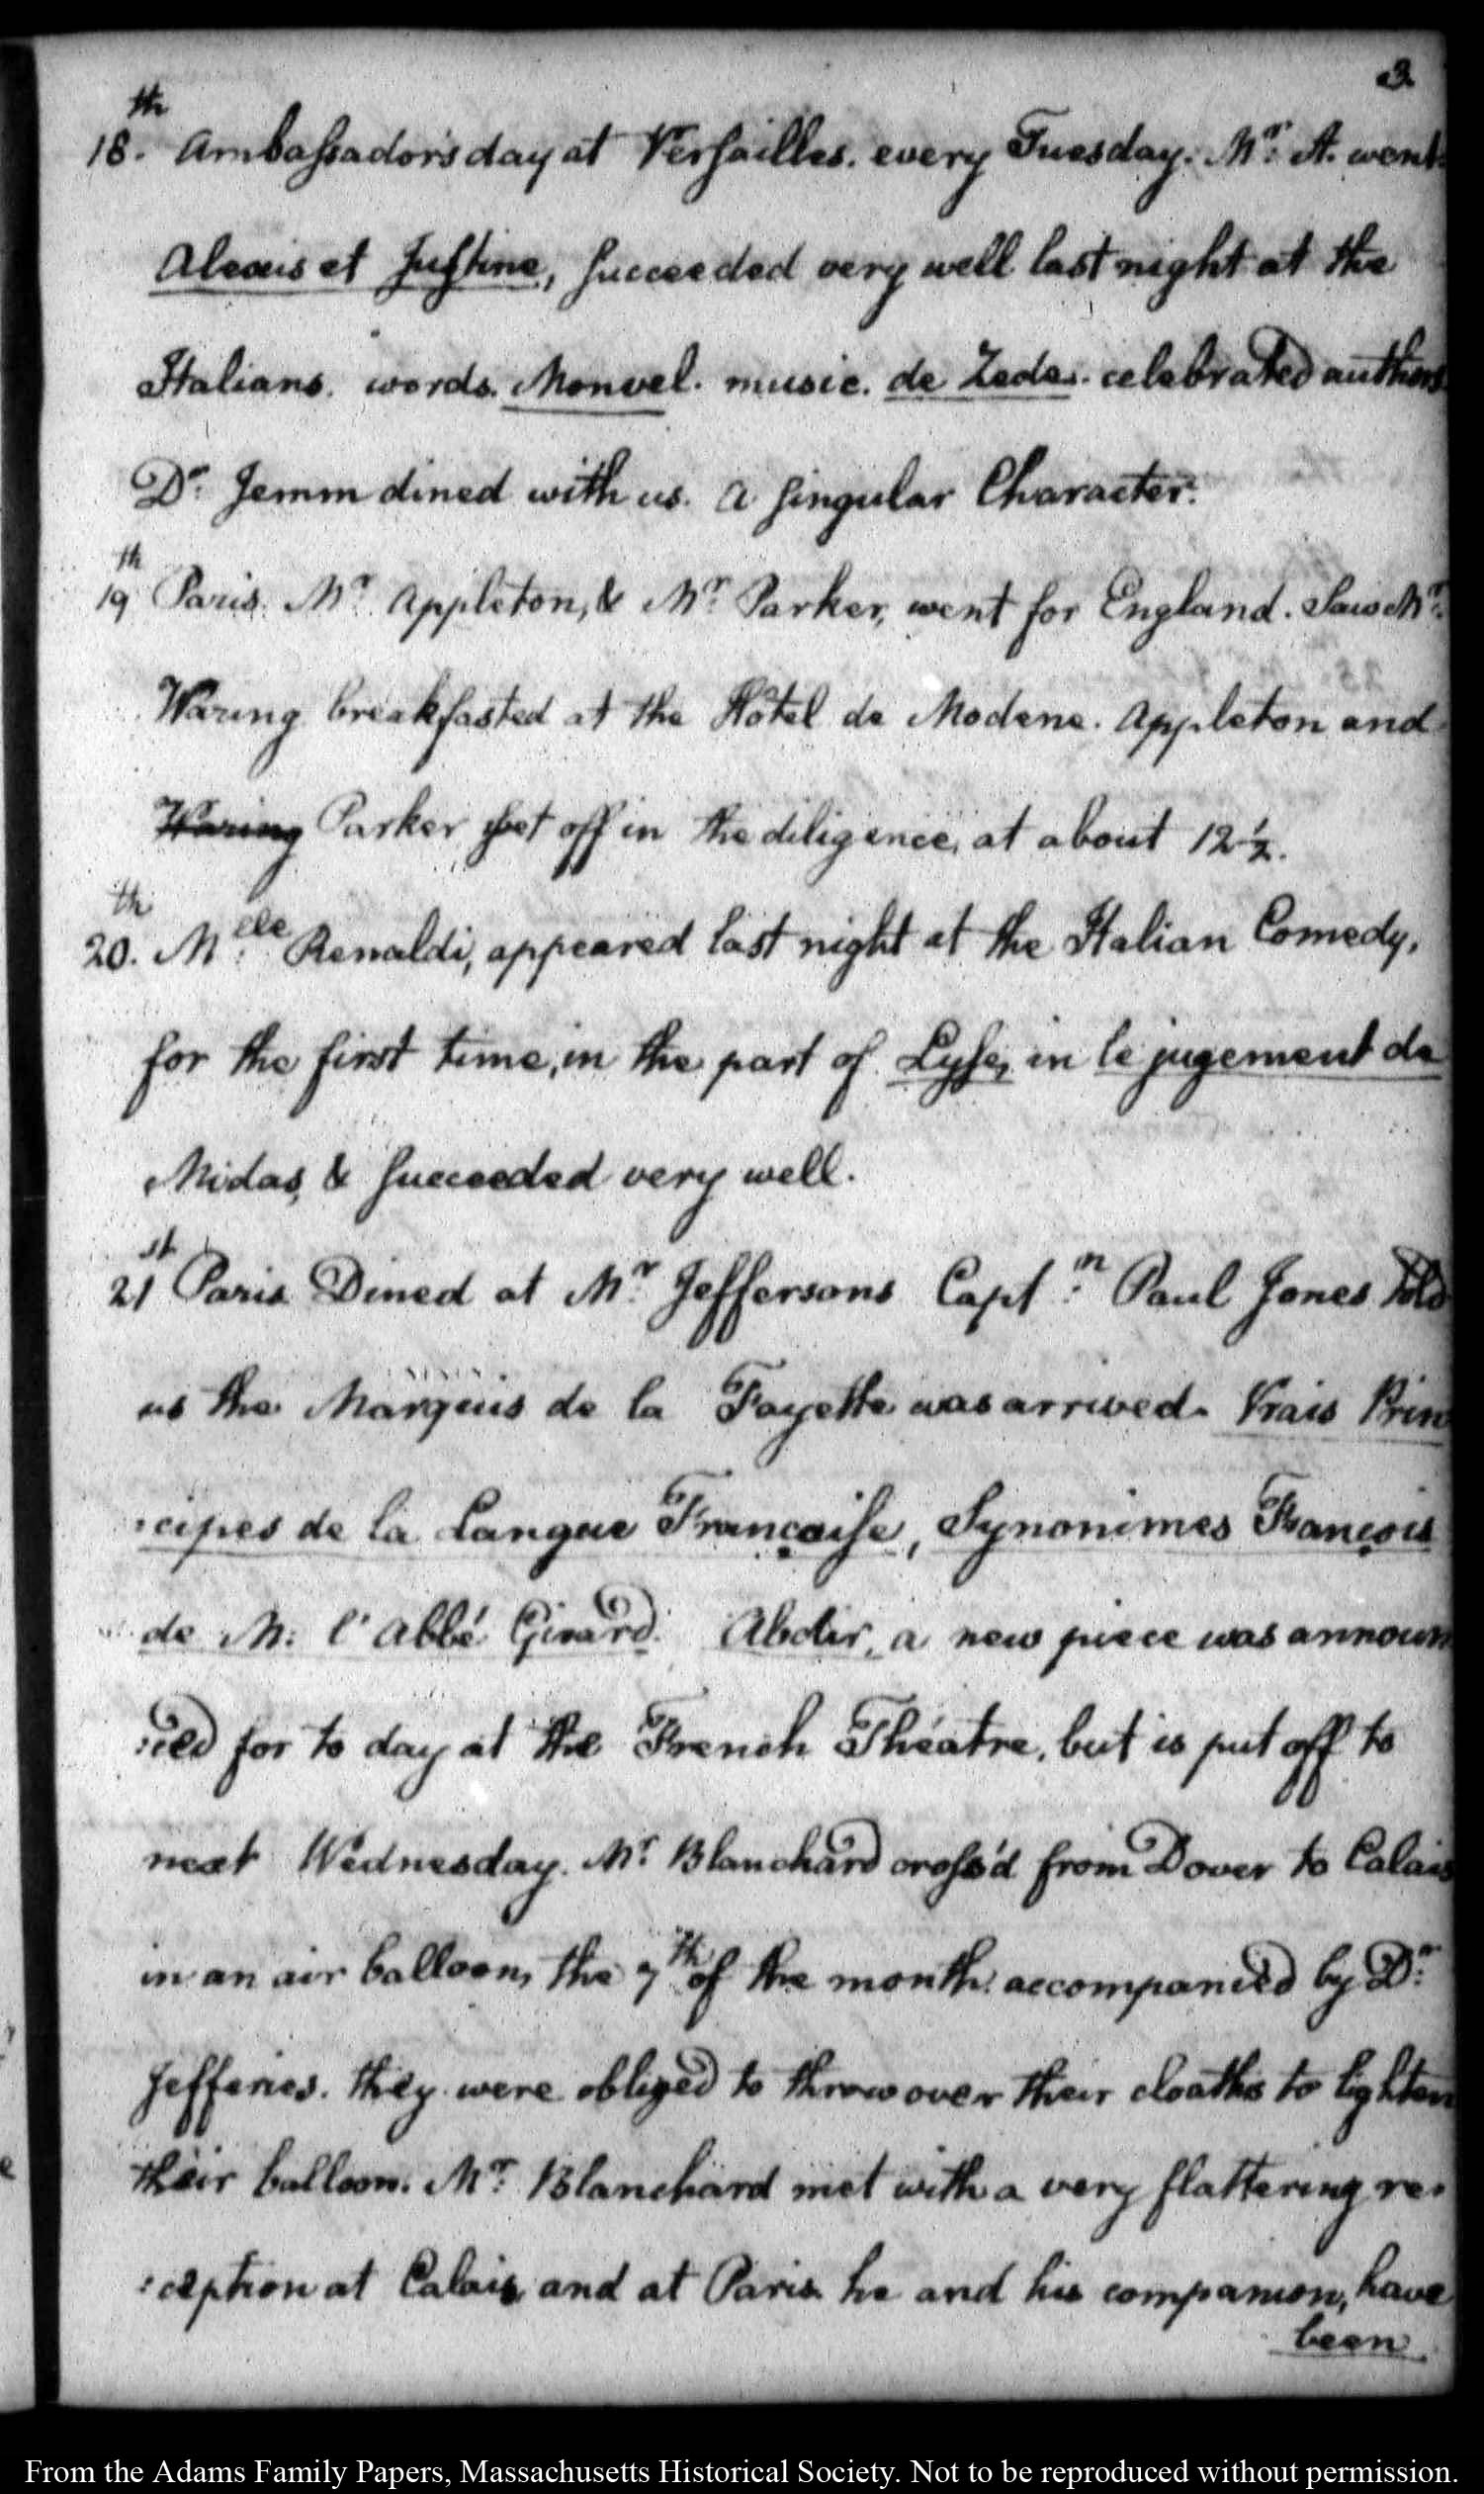 3
18.th Ambassador's day at Versailles. every Tuesday. Mr: A. went.
Alexis et Justine, succeeded very well last night at the
Italians. words. Monvel. music. de Zedes. celebrated authors
Dr: Jemm dined with us. A singular Character.
19th Paris. Mr. Appleton, & Mr. Parker, went for England. Saw Mr.
Waring breakfasted at the Hôtel de Modene. Appleton and
Waring Parker set off in the diligence, at about 12 1/2.
20.th Melle: Renaldi, appeared last night at the Italian Comedy,
for the first time, in the part of Lyse, in le jugement de
Midas, & succeeded very well.
21st Paris Dined at Mr. Jeffersons Captn: Paul Jones told
us the Marquis de la Fayette was arrived. Vrais Prin
:cipes de la Langue Françaîse, Synonimes François
de M: l'Abbé Girard. Abdir, a new piece was announ
:ced for to day at the French Théatre, but is put off to
next Wednesday. Mr. Blanchard cross'd from Dover to Calais
in an air balloon, the 7th of the month. accompanied by Dr:
Jefferies. they were obliged to throw over their cloaths to lighten
their balloon. Mr: Blanchard met with a very flattering re:
:ception at Calais and at Paris. he and his companion, have
been
From the Adams Family Papers, Massachusetts Historical Society. Not to be reproduced without permission.